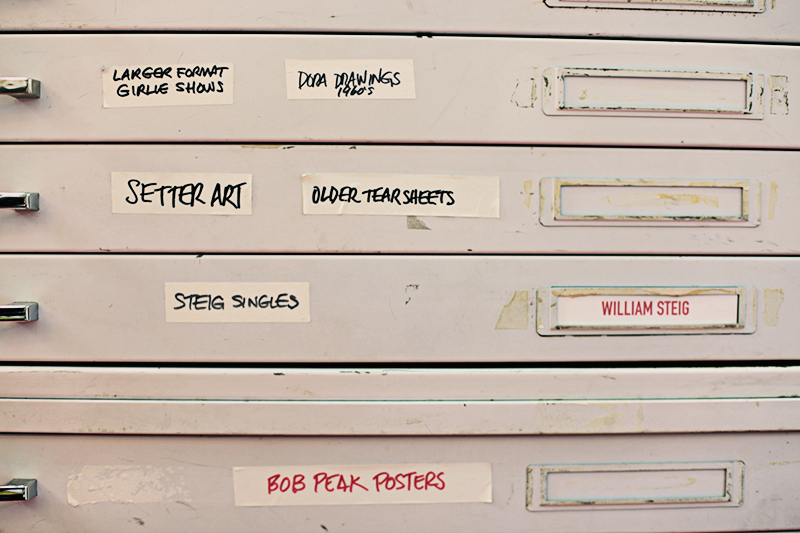 LARGER FORMAT
GIRLIE SHOWS
DODA DRAWINGS
1960'S
SETTER ART
OLDER TEARSHEETS
STEIG SINGLES
WILLIAM STEIG
BOB PEAK POSTERS